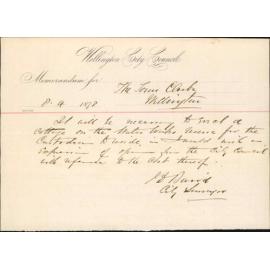 Wellington City Council
Memorandum for
The Town Clerk
8. 4 1878
Wellington
It will be necessary to erect a
cottage on the Water Works reserve for the
Custodian to reside in and
expression of opinion from the City Council
with reference to the cost thereof.
J D Baird
City Surveyor